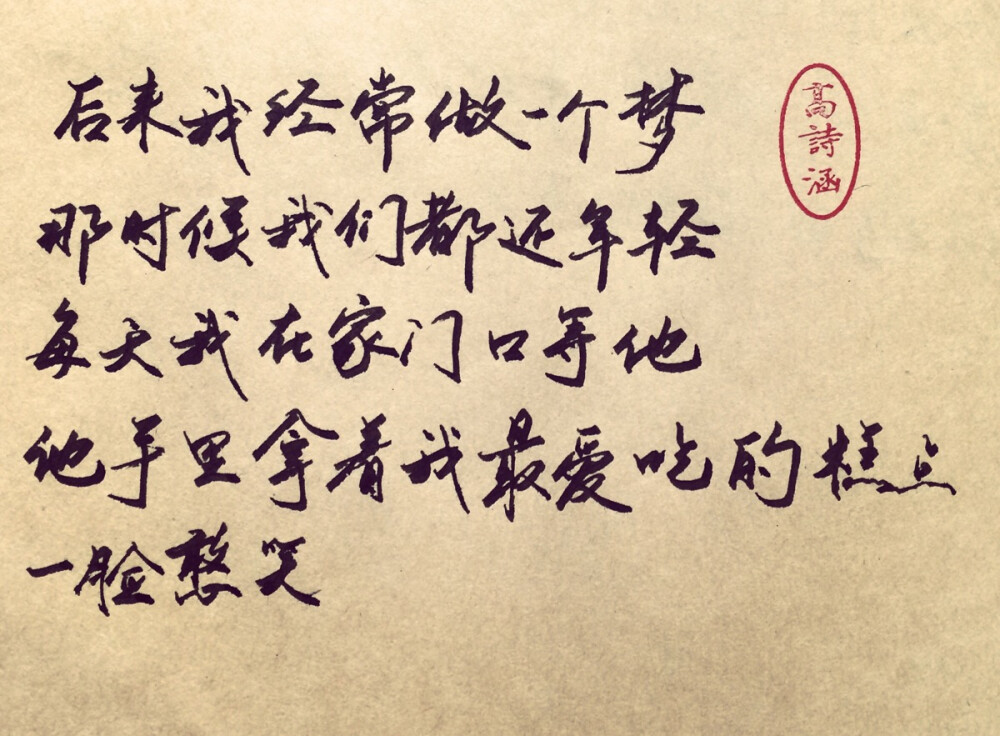 后来我经常做一个梦
那时候我们都还年轻
每天我在家门口等他
他手里拿着我最爱吃的糕点
一脸憨笑
高詩涵